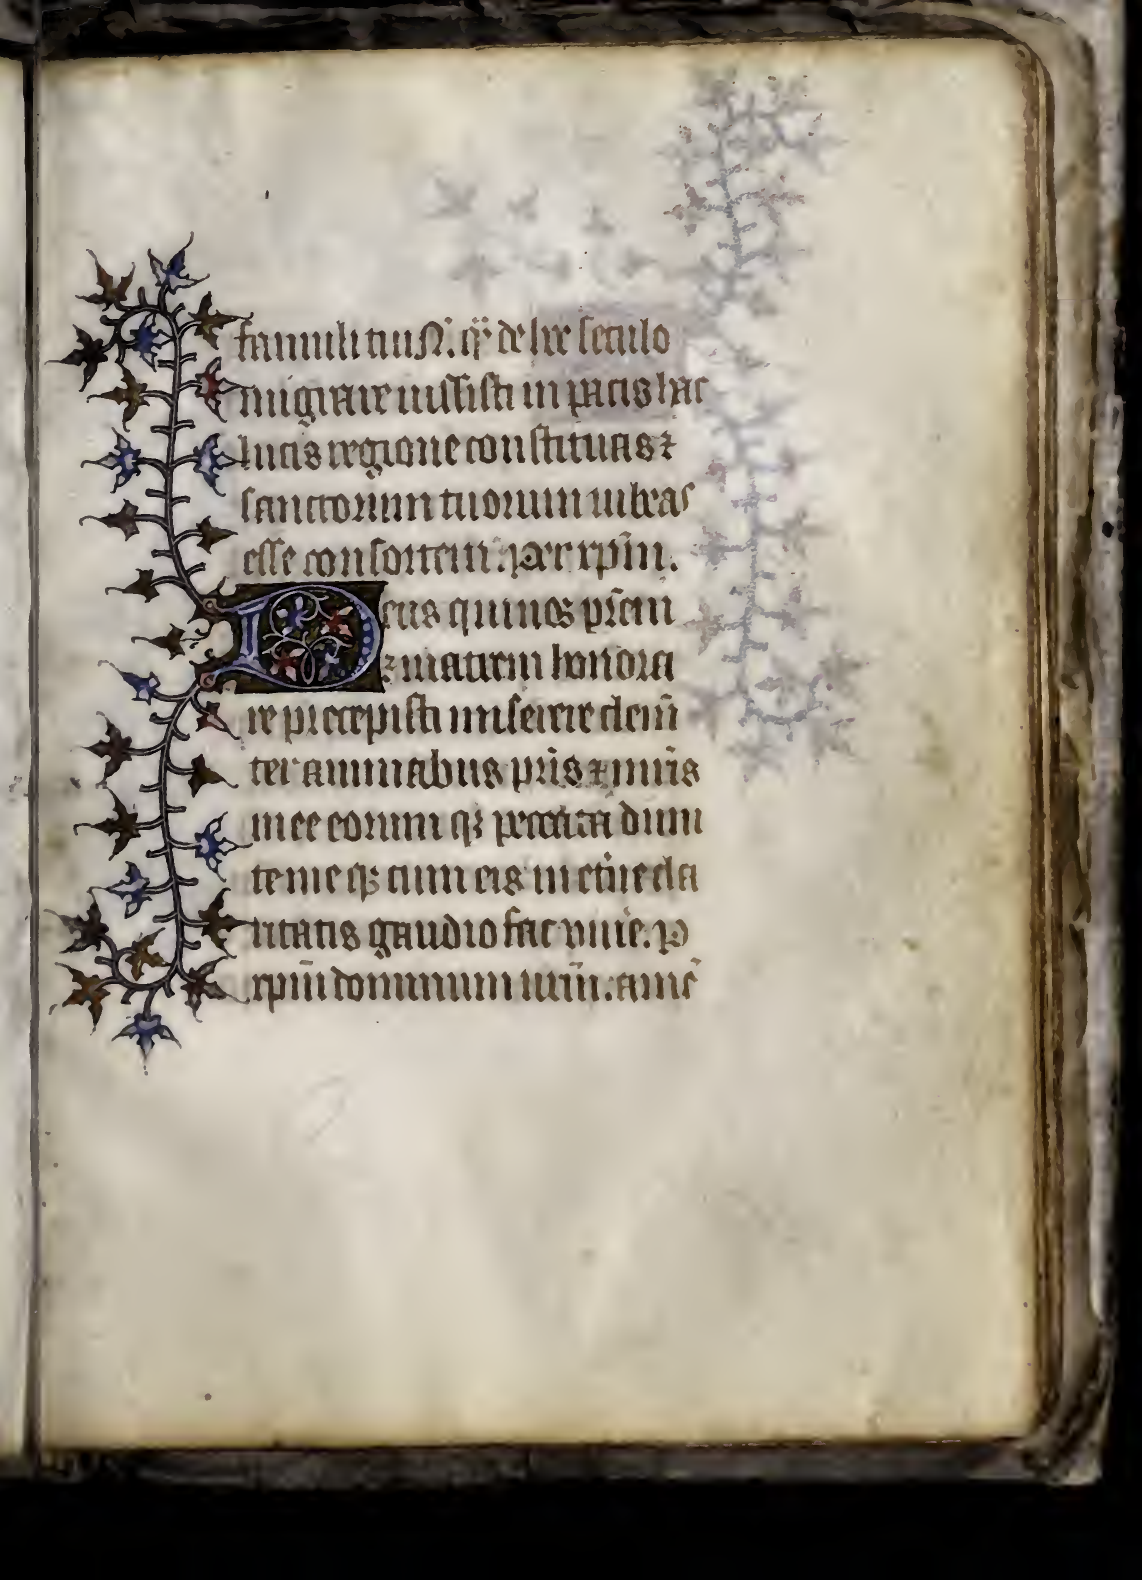 famuli tui .N. qͣ de hoc seculo
migrare iussisti in pacis hac
lucis regione constituas ⁊
sanctorum tuorum iubeas
esse consortem. Per xpm̄.
Deus qui nos prēm
⁊ matrem honora
re precepisti miserere clem̄
ter animabus pr̄is ⁊ mr̄is
mee eorum qꝫ peccata dim
te me qꝫ cum eis in et̄ne cla
ritatis gaudio fac viu̾e. ꝑ
xpm̄ dominum nr̄m. amē